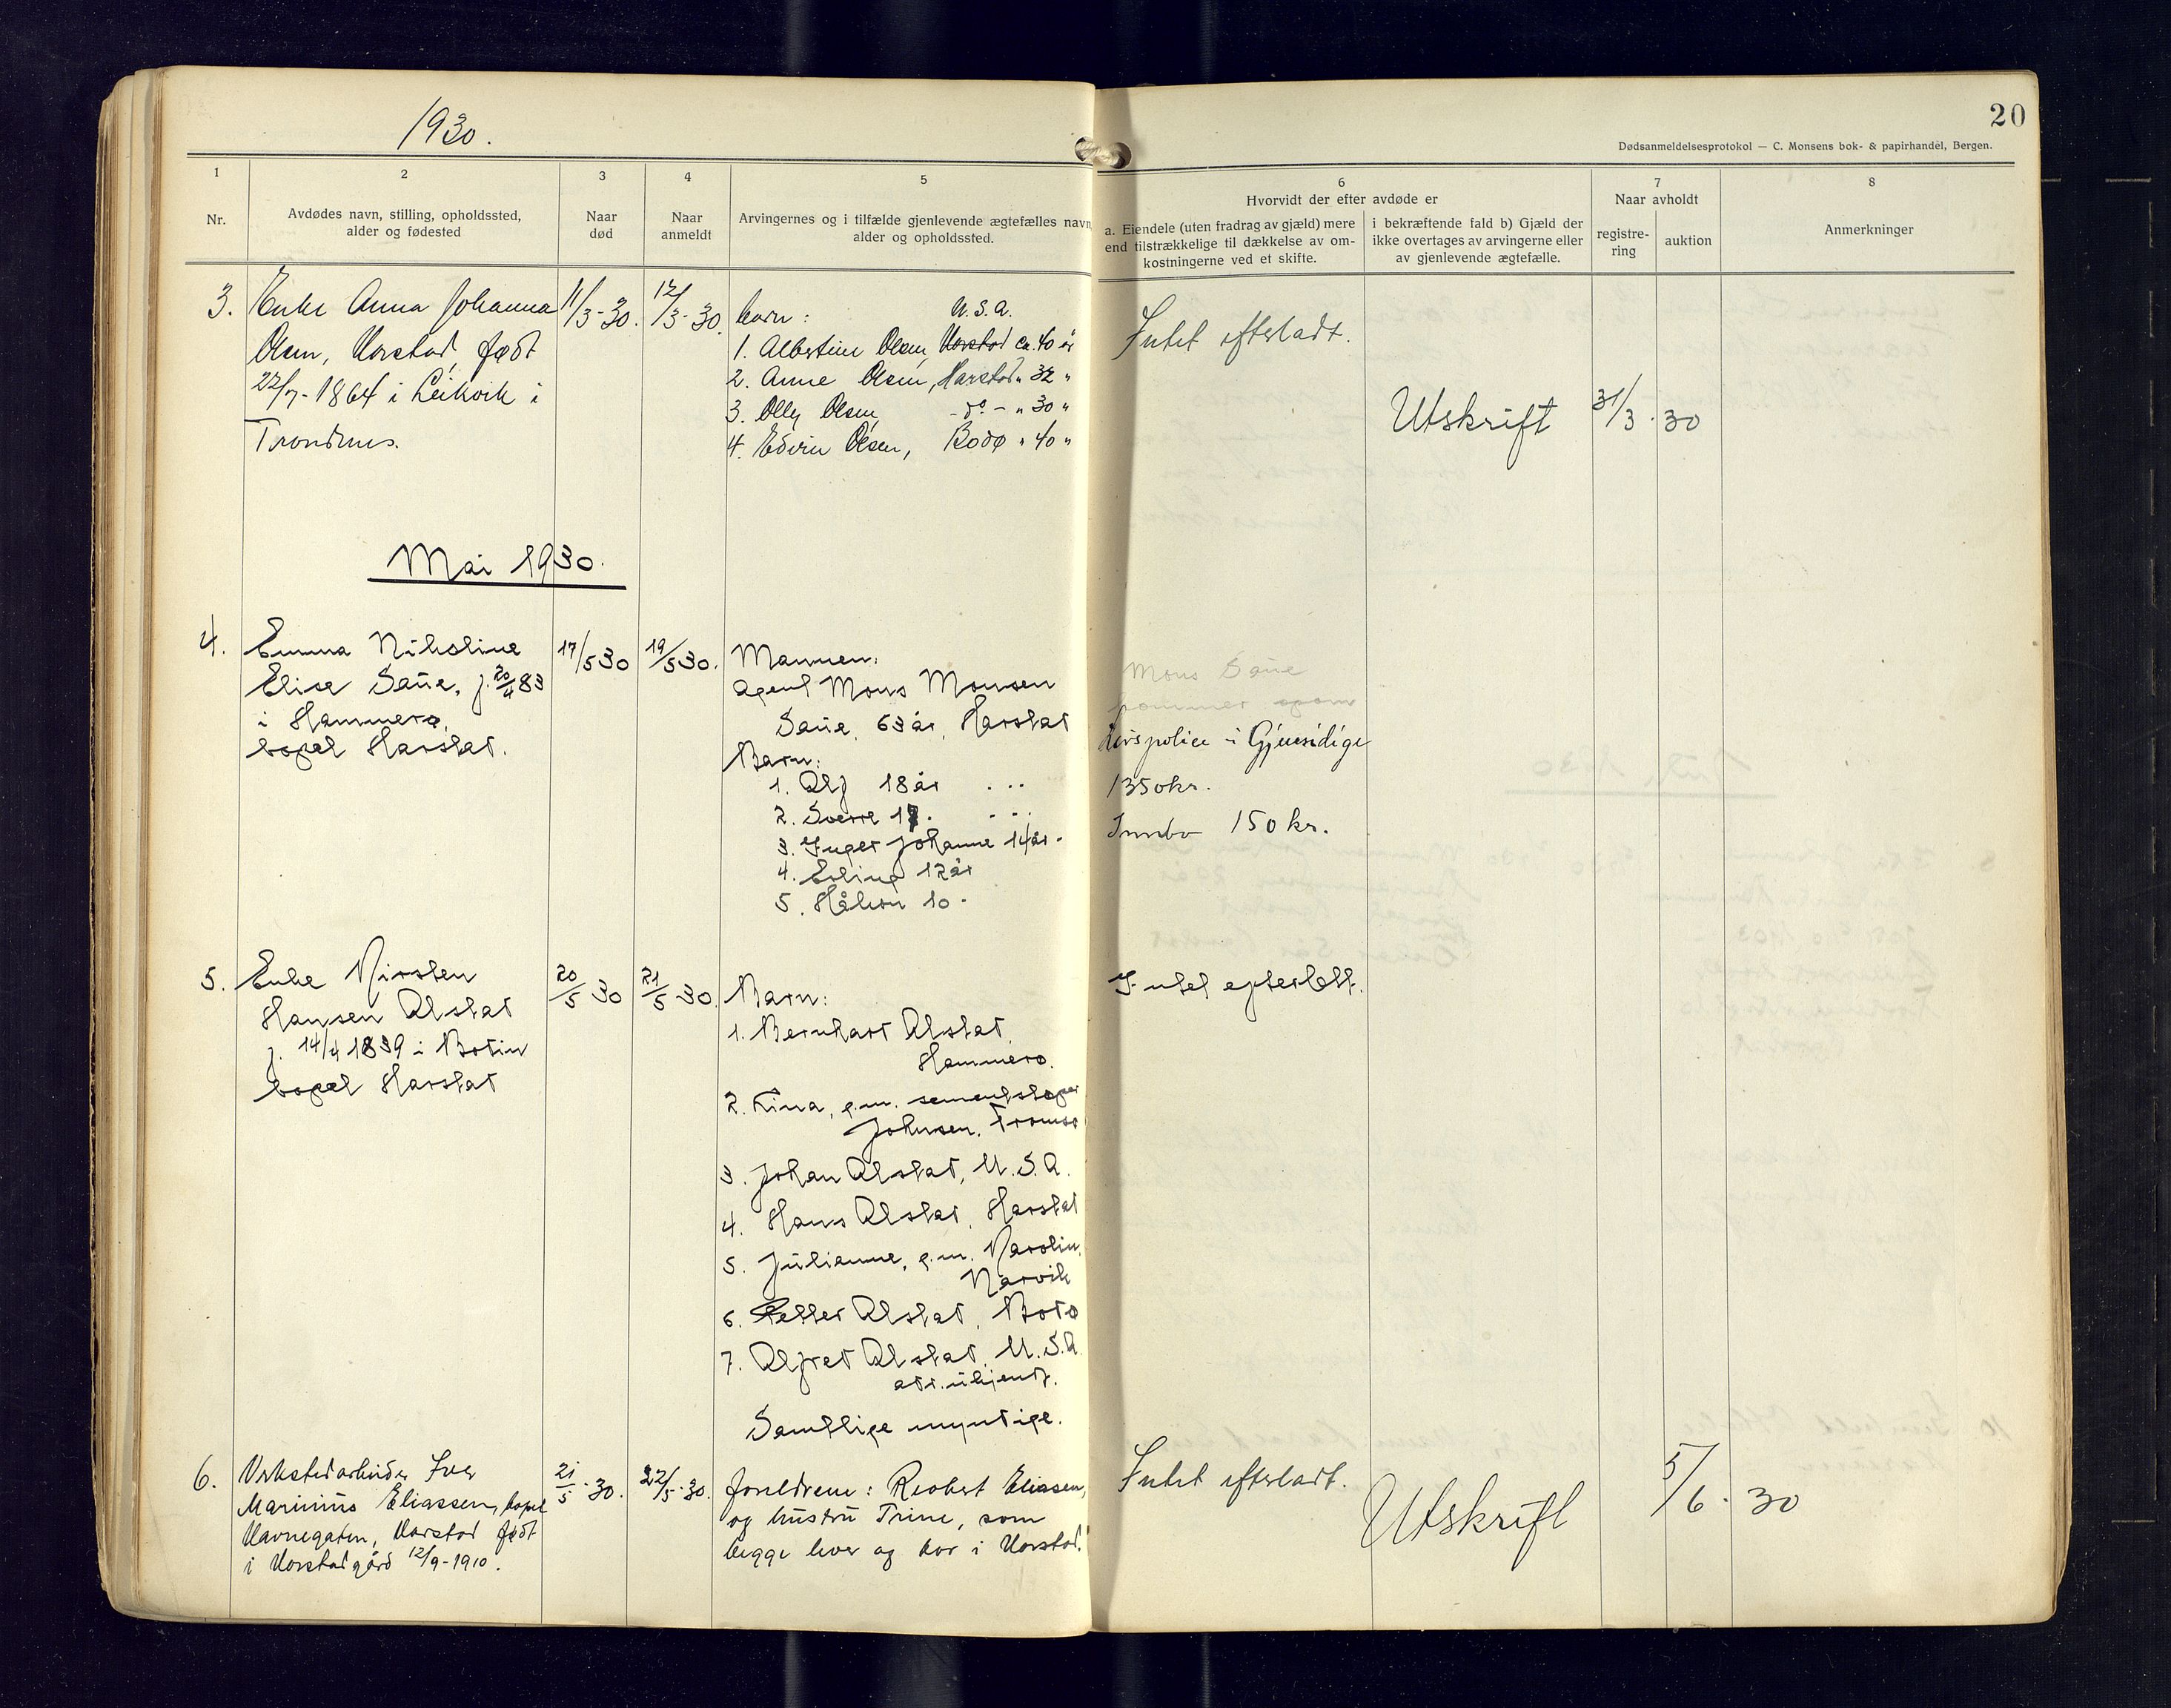 1930.
20
Dødsanmeldelsesprotokol — C. Monsens bok- & papirhandel, Bergen.
1
2
3
4
5
6
7
8
Nr.
Avdødes navn, stilling, opholdssted,
alder og fødested
Naar
død
Naar
anmeldt
Arvingernes og i tilfælde gjenlevende ægtefælles navn
alder og opholdssted.
Hvorvidt der efter avdøde er
a. Eiendele (uten fradrag av gjæld) mere
end tilstrækkelige til dækkelse av om-
kostningerne ved et skifte.
i bekræftende fald b) Gjæld der
ikke overtages av arvingerne eller
av gjenlevende ægtefælle.
Naar avholdt
registre-
ring
auktion
Anmerkninger
3.
Enke Anna Johanna
Olsen, Harstad, født
22/7-1864 i Leikvik i
Trondenes.
11/3-30.
12/3-30.
barn:
U.S.A.
1. Albertine Olsen, Harstad ca. 40 år
2. Anne Olsen, Harstad " 32 "
3. Olly Olsen, - do - " 30 "
4. Edvin Olsen, Bodø " 40 "
Intet efterladt.
Utskrift 31/3.30
Mai 1930.
4.
Emma Nikoline
Elise Sane, f. 20/4 83
i Hammerø,
bopel Harstad.
17/5 30
19/5 30.
Mannen:
agent Mons Monsen
Sane, 63 år, Harstad
Barn:
1. Alf 18 år ...
2. Sverre 17. ...
3. Inger Johanne 14 år -
4. Erling 12 år
5. Håkon 10 -
Mons Sane
kommer
Livspolice i Gjensidige
1350 kr.
Innbo 150 kr.
5.
Enke Kirsten
Hansen Alstad
f. 14/4 1839 i Bodin
bopel Harstad
20/5 30
21/5 30.
Barn:
1. Bernhard Alstad,
Hammerø.
2. Tina, g.m. sementstøper
Johnsen, Tromsø
3. Johan Alstad, U.S.A.
4. Hans Alstad, Harstad
5. Julianne, g.m. Karolin,
Narvik
6. Petter Alstad, Bodø
7. Alfred Alstad, U.S.A.
adr. ukjendt.
Samtlige myndige.
Intet efterlatt.
6.
Verkstedarbeider Ivar
Marinius Eliassen, bopel
Havnegaten, Harstad født
i Harstadgård 12/9-1910.
21/5-30.
22/5-30.
Foreldrene: Robert Eliassen,
og hustru Trine, som
begge lever og bor i Harstad.
Intet efterladt.
Utskrift
5/6.30